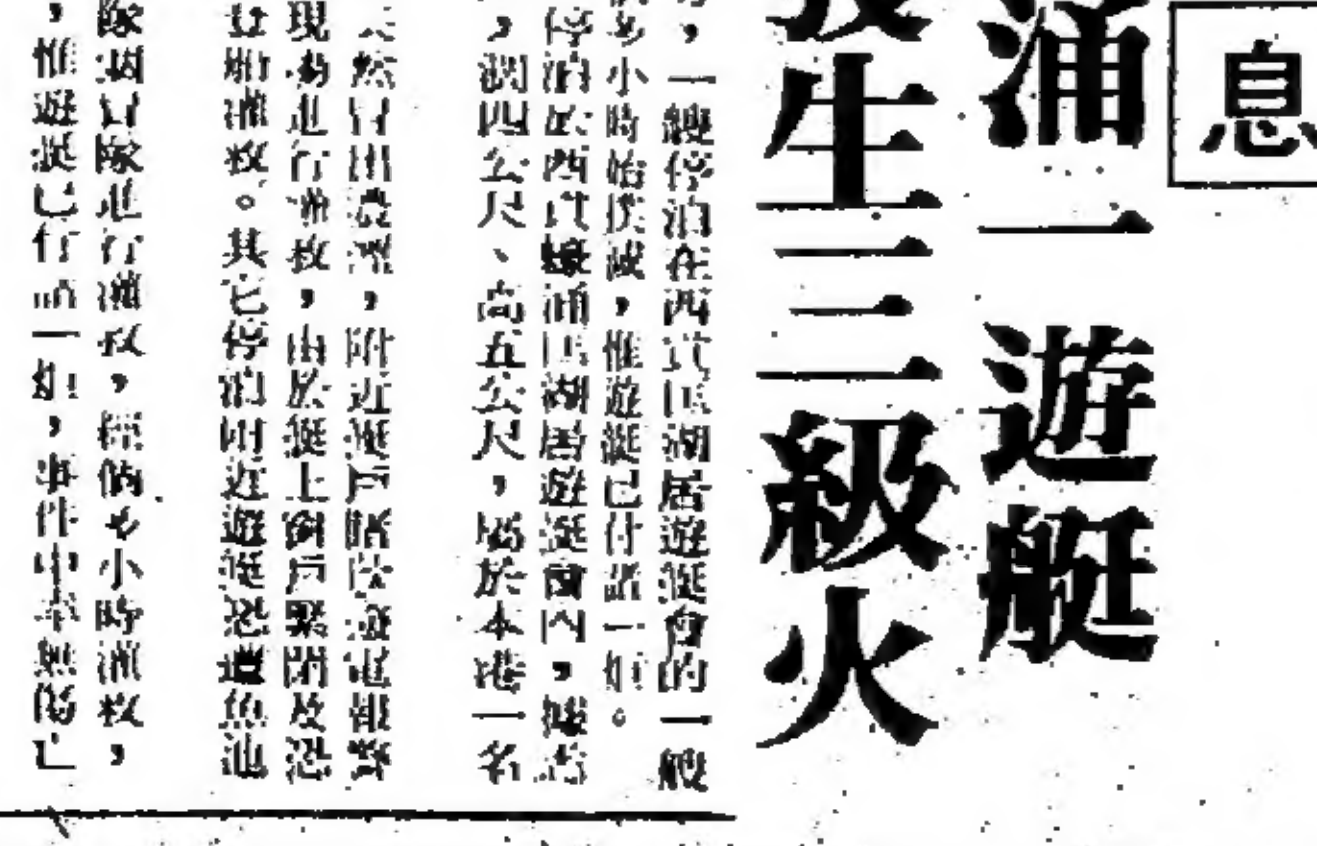 息
涌一遊艇
發生三級火
，一艘停泊在西貢匡湖居遊艇會的一艘
多小時始撲滅，惟遊艇已付諸一炬。
停泊於西貢蠔涌匡湖居遊艇會內，據悉
，濶四公尺、高五公尺，屬於本港一名
然冒出濃煙，附近艇戶睹狀致電報警
現場進行灌救，由於艇上窗戶緊閉及恐
登船灌救。其它停泊附近遊艇恐遭魚池
隊兩冒隊進行灌救，經倆多小時灌救，
，惟遊艇已付諸一炬，事件中幸無傷亡